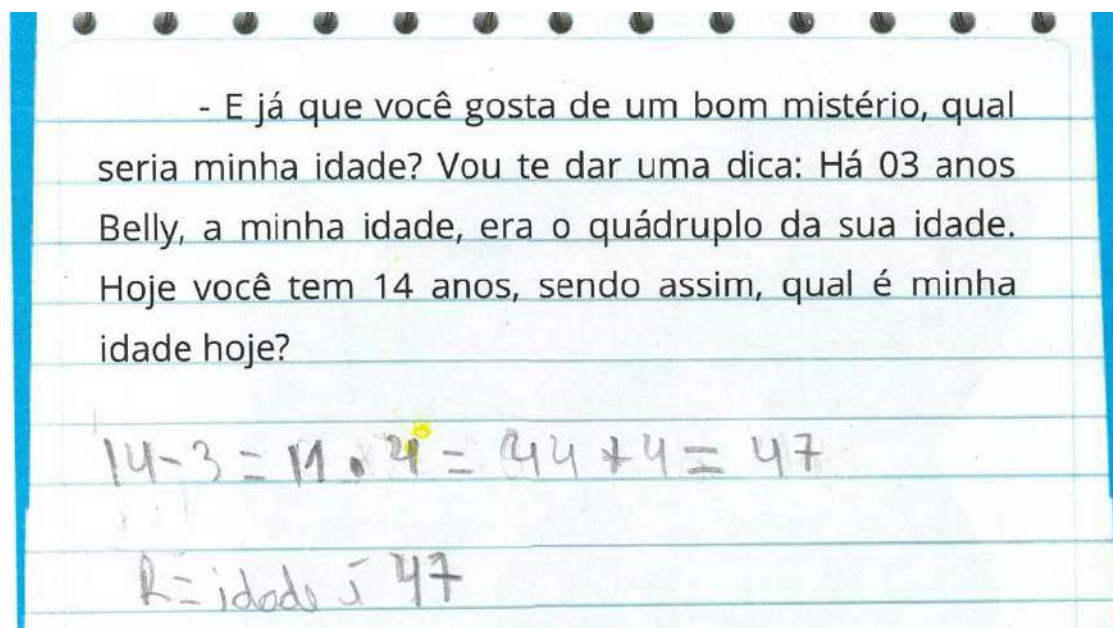 - E já que você gosta de um bom mistério, qual
seria minha idade? Vou te dar uma dica: Há 03 anos
Belly, a minha idade, era o quádruplo da sua idade.
Hoje você tem 14 anos, sendo assim, qual é minha
idade hoje?
14-3 = 11 . 4 = 44 + 4 = 47
R = idade é 47